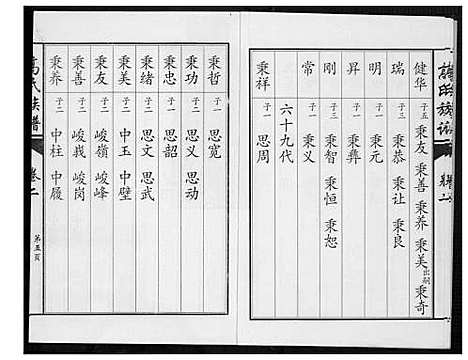 氏族譜
健华 子五 秉友 秉善 秉养 秉美出嗣 秉奇
瑞 子三 秉恭 秉让 秉良
明 子一 秉元
昇 子一 秉彝
刚 子三 秉智 秉恒 秉恕
常 子一 秉义
六十九代
秉祥 子一 思周
秉哲 子一 思宽
秉功 子二 思义 思动
秉忠 子一 思韶
秉绪 子二 思文 思武
秉美 子二 中玉 中璧
秉友 子二 峻嶺 峻峰
秉善 子二 峻峩 峻岗
秉养 子二 中柱 中履
氏族譜
卷二
第五頁